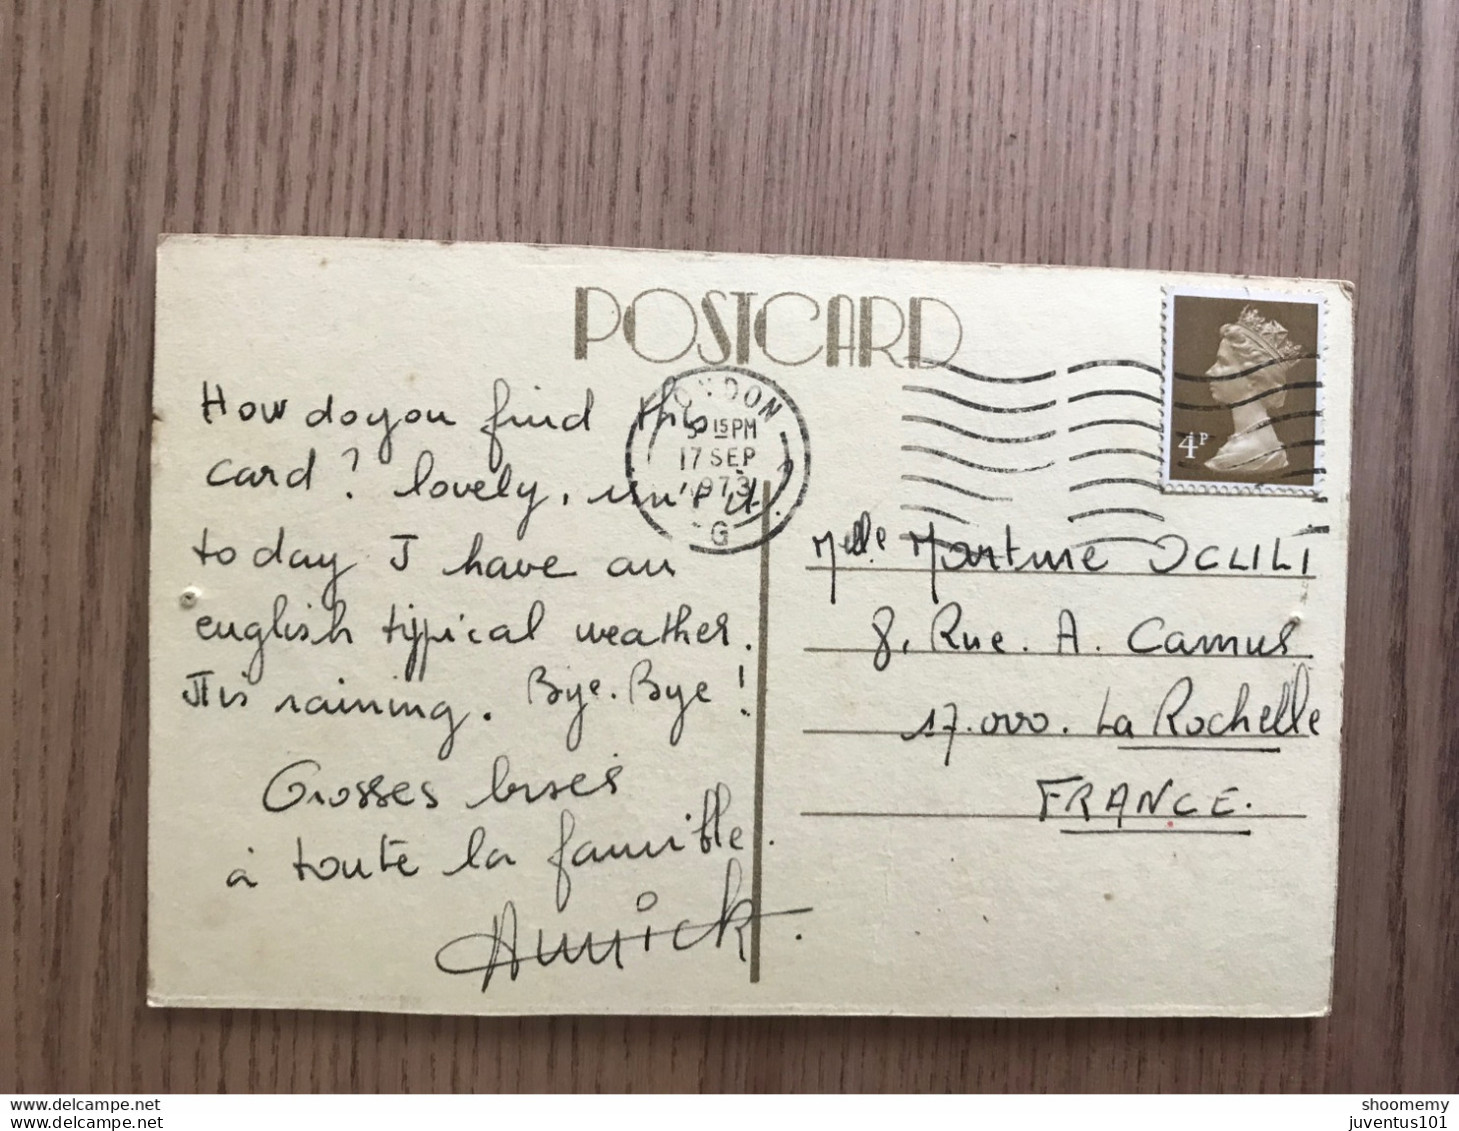 POSTCARD
LONDON
5 15 PM
17 SEP
1973
G
4P
How do you find this
card? lovely, isn't it.
today I have an
english typical weather.
It is raining. Bye. Bye!
Grosses bises
à toute la famille.
Annick.
Melle. Martine
8, Rue. A. Camus
17.000. La Rochelle
FRANCE.
www.delcampe.net
www.delcampe.net
shoomemy
juventus101